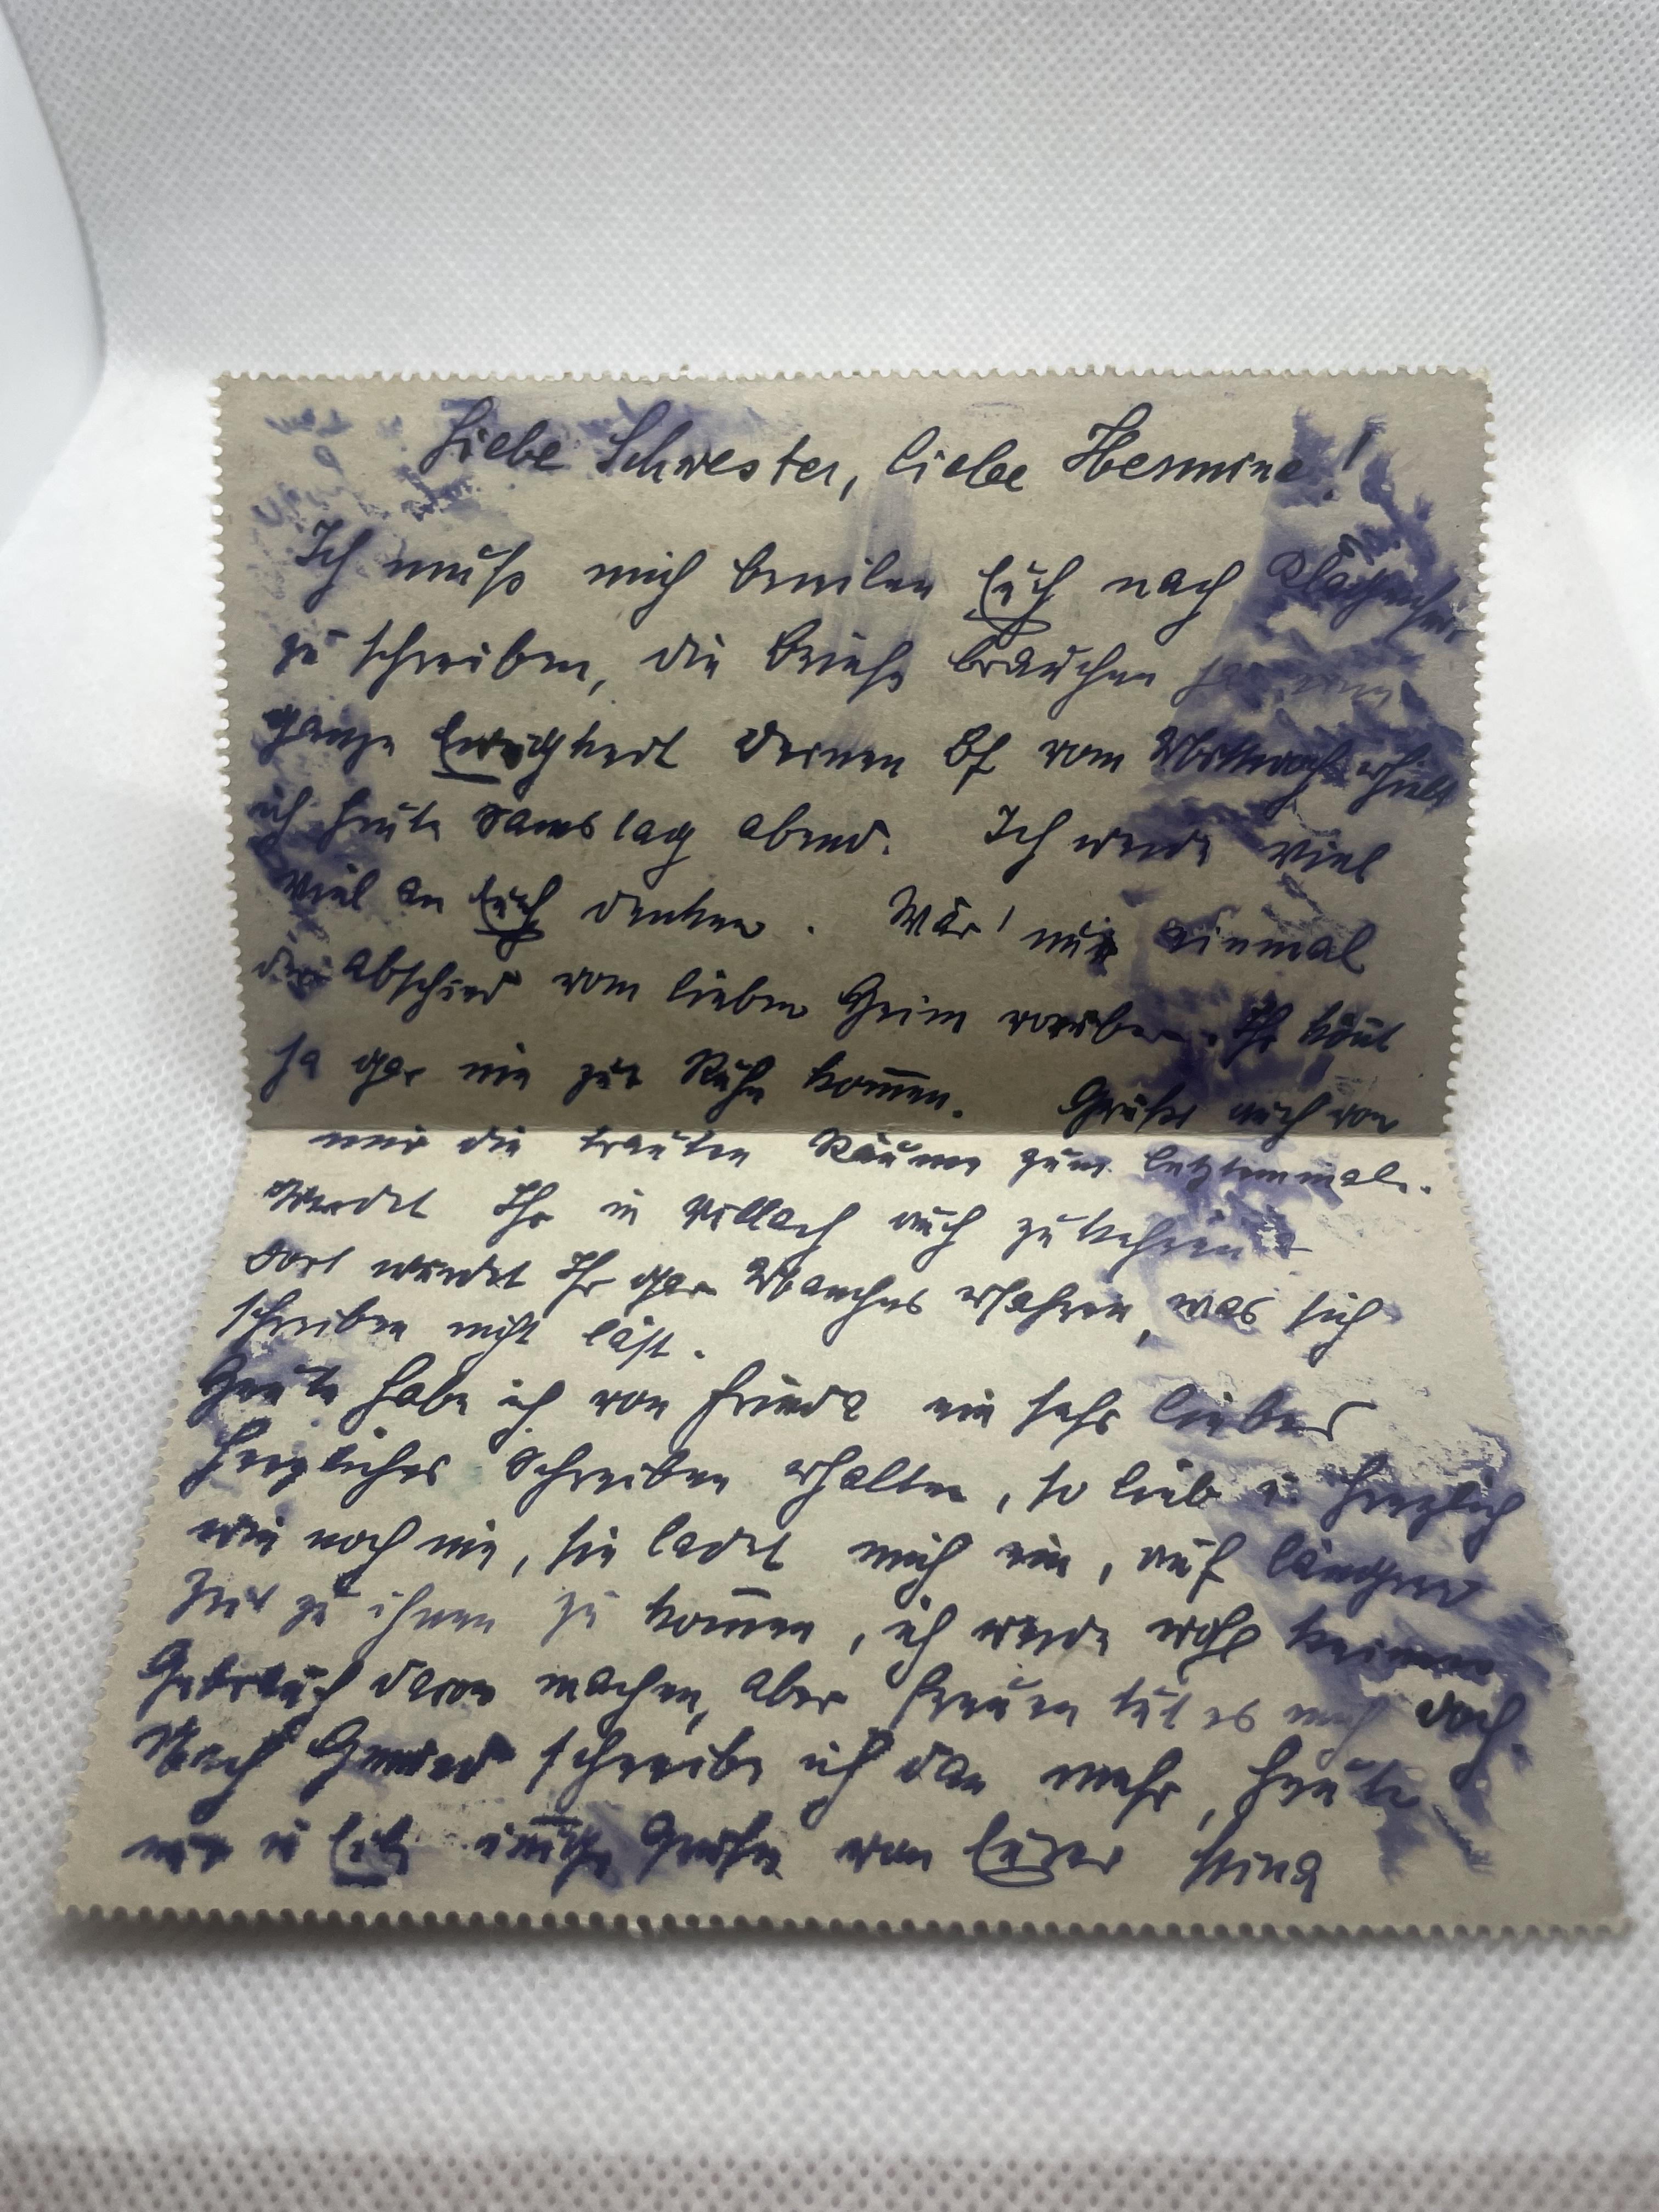 Liebe Schwester, liebe Hermine!
Ich muß mich beeilen Euch nach
zu schreiben, die Briefe brauchen ja eine
ganze Ewigkeit Deinen Bf vom Mittwoch erhielt
ich heute Samstag abend. Ich werde viel
viel an Euch denken. Wär' nur einmal
der Abschied vom lieben Heim vorüber. Ihr könt
ja gar nie zur Ruhe kom̄en. Grüßt auch von
mir die trauten Räume zum letztenmale.
Werdet Ihr in Villach auch zukehren?
Dort werdet Ihr gar Manches erfahren, was sich
schreiben nicht läßt.
Heute habe ich von Frieda ein sehr liebes
herzliches Schreiben erhalten, so lieb u. herzlich
wie noch nie, sie ladet mich ein, auf längere
Zeit zu ihnen zu kom̄en, ich werde wohl keinen
Gebrauch davon machen, aber freuen tut es mich doch.
Nach schreibe ich dan mehr, heute
nur innige Grüße von Eurer